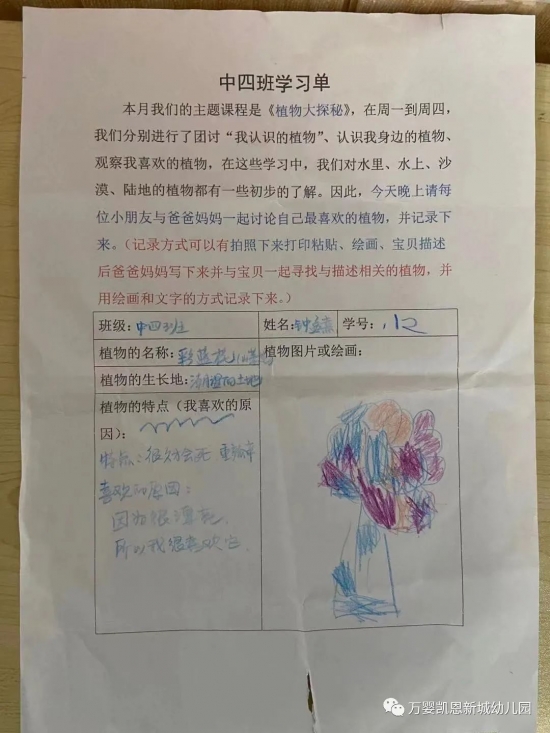 中四班学习单
本月我们的主题课程是《植物大探秘》，在周一到周四，
我们分别进行了团讨“我认识的植物”、认识我身边的植物、
观察我喜欢的植物，在这些学习中，我们对水里、水上、沙
漠、陆地的植物都有一些初步的了解。因此，今天晚上请每
位小朋友与爸爸妈妈一起讨论自己最喜欢的植物，并记录下
来。（记录方式可以有拍照下来打印粘贴、绘画、宝贝描述
后爸爸妈妈写下来并与宝贝一起寻找与描述相关的植物，并
用绘画和文字的方式记录下来。）
班级：中四班 姓名：钟 学号：12
植物的名称：彩蓝花 植物图片或绘画：
植物的生长地：潮湿的土地
植物的特点（我喜欢的原
因）：
特点：很久才会死
喜欢的原因：
因为很漂亮，
所以我很喜欢它
万婴凯恩新城幼儿园